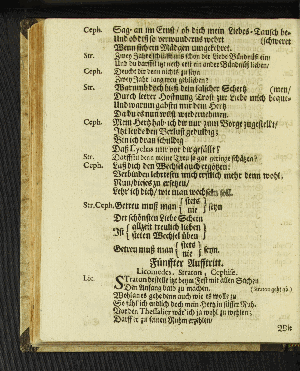 Ceph. Sag' an im Ernst/ ob dich mein Liebes-Tausch be-
Und ob dß so verwunderns wehrt (schweret
Wenn sich ein Mädgen umgekehret.
Str. Zwey Jahre schon der Liebe Bündnüß ein
Und du darffst itzt noch ein andrer Bündnüß lieben/
Ceph. Deucht dir denn nichts zu seyn
Zwey Jahr lang gewlieben?
Str. Warumb doch hieß dein falscher Schertz (men/
Durch leerer Hoffnung Trost zur Liebe mich beque-
Und warum gabstu mir dein Hertz
Da du es nun willst wiedernehmen.
Ceph. Mein Hertz hab' ich dir nur zum Borge zugestellt/
Itzt leide den Verlust geduldig;
Bin ich dran schuldig
Daß Lycidas mir vor dir gefällt?
Str. Darffstu denn meine Treu so gar geringe schätzen?
Ceph. Laß dich den Wechsel auch ergötzen:
Verbinden lehrt uns mich erstlich mehr denn wohl.
Nun/ dieses zu ersetzen/
Lehr' ich dich/ wie man wechseln soll.
Str. Ceph. Getreu muß man { stets nie } seyn
Der schönsten Liebe Schein
Ist { allzeit treulich lieben steten Wechsel üben
Getreu muß man { stets nie } seyn.
Fünffter Aufftritt.
Licomedes, Straton, Cephise.
Lic. Straton bestelle itzt beym Fest mit allen Sachen
Den Anfang bald zu machen. (Straton geht ab.)
Wohlan es gehe denn auch wie es wolle zu
So fühl ich endlich doch mein Hertz in süsser Ruh.
Vor der Thessalier wär' ich ja wohl zu wehlen;
Darff er zu seinen Ruhm erzehlen/
Die